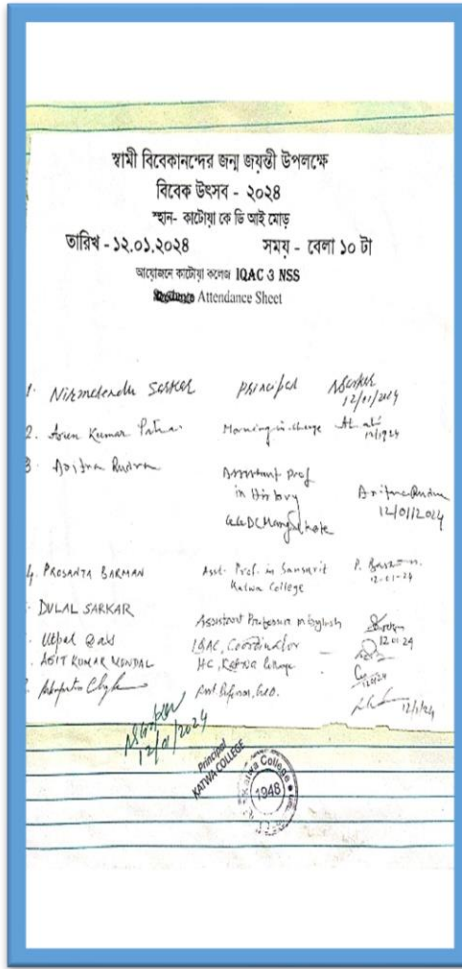 স্বামী বিবেকানন্দের জন্ম জয়ন্তী উপলক্ষে
বিবেক উৎসব - ২০২৪
স্থান- কাটোয়া কে ডি আই মোড়
তারিখ - ১২.০১.২০২৪ সময় - বেলা ১০ টা
আয়োজনে কাটোয়া কলেজ IQAC ও NSS
Attendance Sheet
1. Nirmalendu Sarkar Principal NSarkar 12/01/2024
2. Arun Kumar Morning in-charge
3. Rudra Assistant Prof
in History
12/01/2024
4. PROSANTA BARMAN Asst. Prof. in Sanskrit P. Barman
Katwa College 12-01-24
DULAL SARKAR Assistant Professor in English
12.01.24
Utpal Das IQAC, Coordinator
ASIT KUMAR MONDAL HC, Katwa College
12/1/24
NSarkar
12/01/2024
Principal
KATWA COLLEGE
Katwa College
1948